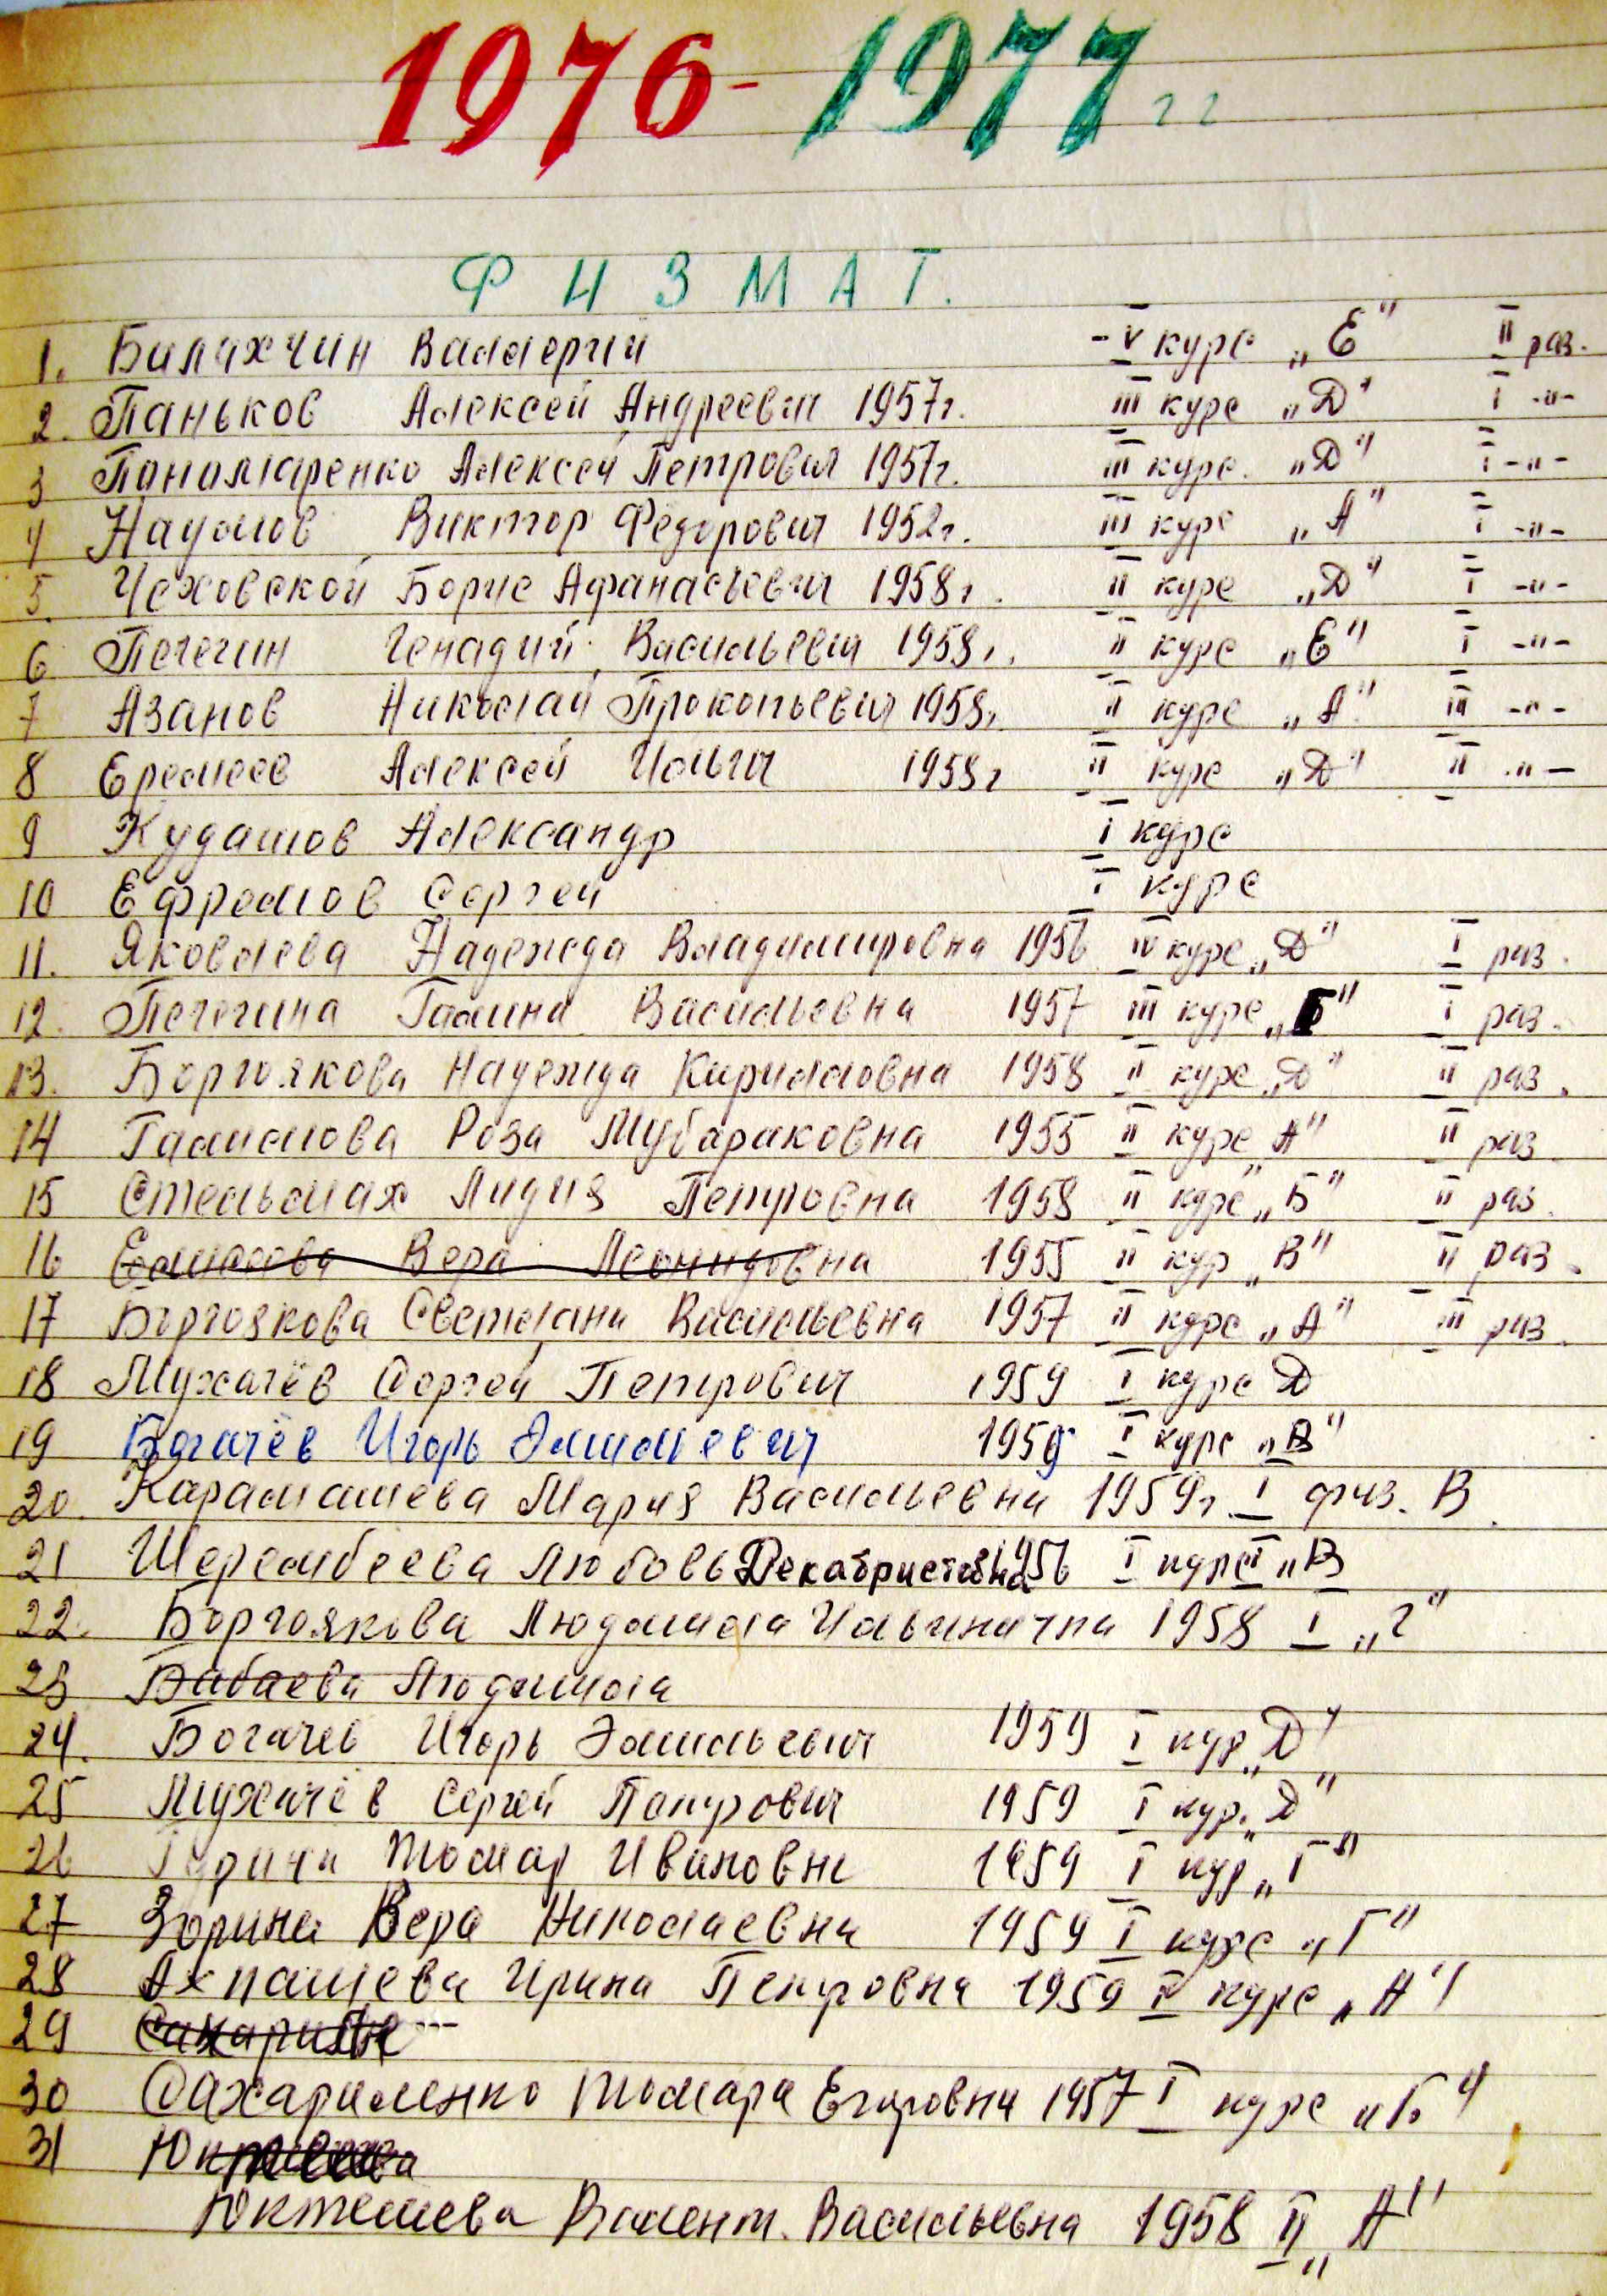 1976-1977 гг
ФИЗМАТ.
1. Балахчин Валерий -V курс „Е" II раз.
2. Паньков Алексей Андреевич 1957г. III курс „Д" I -"-
3 Панамаренко Алексей Петрович 1957г. III курс. „Д" I -"-
4 Наумов Виктор Федорович 1952г. III курс „А" I -"-
5. Чеховской Борис Афанасьевич 1958г. II курс „Д" I -"-
6 Печегин Генадий Васильевич 1958г. II курс „Е" I -"-
7 Азанов Николай Прокопьевич 1958г. II курс „А" III -"-
8 Еремеев Алексей Ильич 1958г II курс „Д" II -"-
9 Кудашов Александр I курс
10 Ефремов Сергей I курс
11. Яковлева Надежда Владимировна 1956 IV курс „Д" I раз.
12. Печегина Галина Васильевна 1957 III курс „Б" I раз.
13. Боргоякова Надежда Кирилловна 1958 II курс „Д" II раз.
14 Галимова Роза Мубараковна 1955 II курс „А" II раз.
15 Стельмах Лидия Петровна 1958 II курс „Б" II раз.
16 Вера Леонидовна 1955 II кур „В" II раз.
17 Боргоякова Светлана Васильевна 1957 II курс „А" III раз.
18 Мухачёв Сергей Петрович 1959 I курс Д
19 Богачёв Игорь Эмильевич 1959 I курс „В"
20. Карамашева Мария Васильевна 1959г. I физ. В.
21 Шерембеева Любовь Декабристовна 1956 I курс „В
22. Боргоякова Людмила Ильинична 1958 I „г"
23 Бабаева Людмила
24. Богачев Игорь Эмильевич 1959 I кур „Д"
25 Мухачёв Сергей Петрович 1959 I кур. „Д"
26 Тамар Ивановна 1959 I кур „Г"
27 Зорина Вера Николаевна 1959 I курс „Г"
28 Ахпашева Ирина Петровна 1959 I курс „А"
29
30 Сахариленко Томара Егоровна 1957 I курс „Б"
31
Юктешева Валент. Васильевна 1958 II „А"